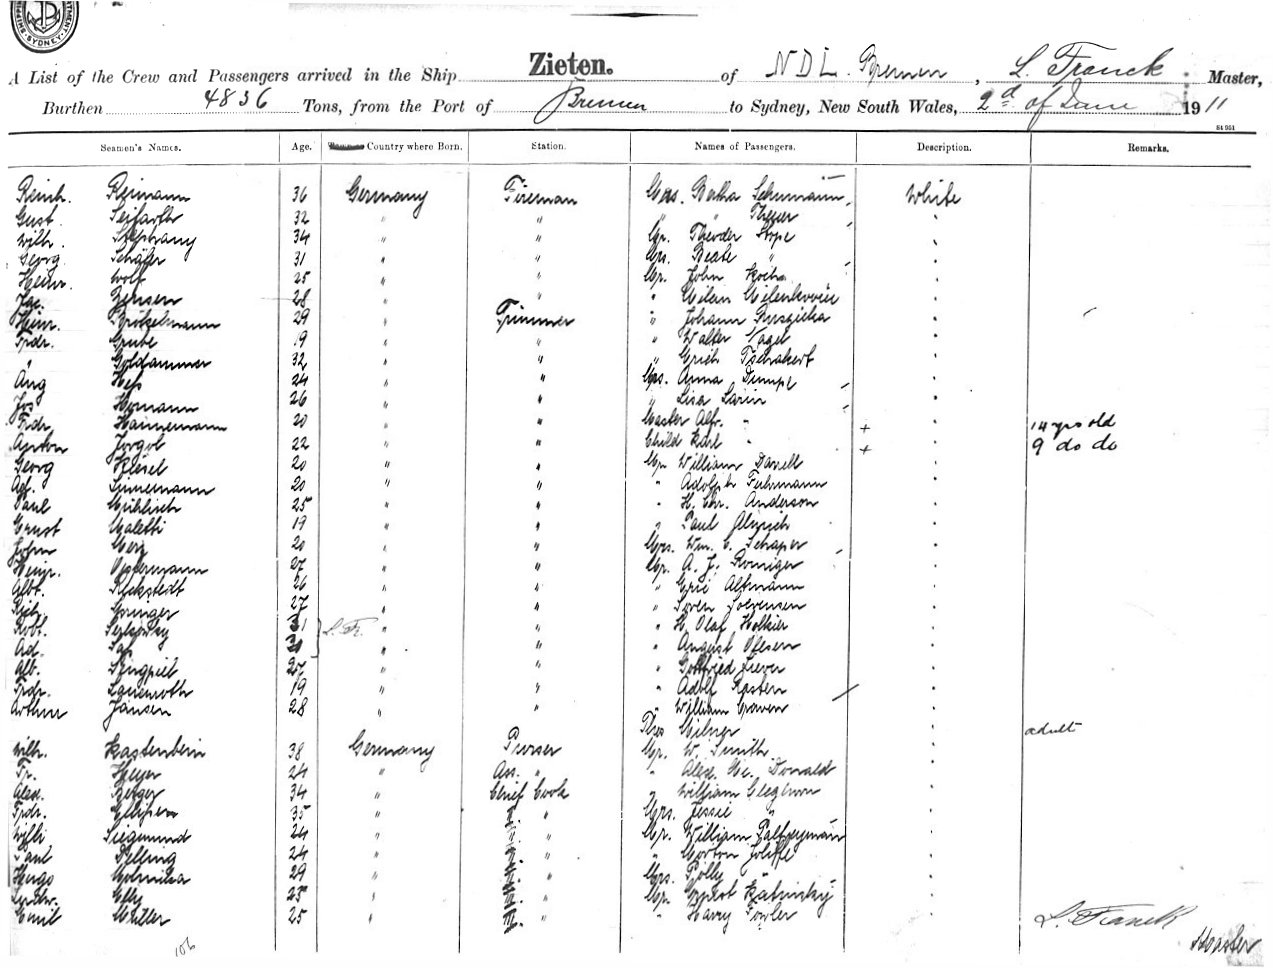 SYDNEY
Zieten.
A List of the Crew and Passengers arrived in the Ship Zieten. of NDL. Bremen, L. Franck Master,
Burthen 4836 Tons, from the Port of Bremen to Sydney, New South Wales, 2d of June 1911
St 951
Seamen's Names. Age. Country where Born. Station. Names of Passengers. Description. Remarks.
Reinh. Reimann 36 Germany Fireman Mrs. Bertha Schumann, White
Gust. Seifarth 32 " " " " Theuer "
Wilh. Stephany 34 " " Mr. Theodor "
Georg. Schäfer 31 " " Mrs. Beate " "
Heinr. Wolf 25 " " Mr. John Kochs "
Jac. Bensen 28 " " " Milan Milenkovic "
Heinr. 29 " Trimmer " Johann Ruszicka "
Frdr. Grube 19 " " " Walter Vagel "
" Goldammer 32 " " " Erich Tschakert "
Aug. Hess 24 " " Mrs. Anna "
Jos. Homann 26 " " " Lisa "
Frdr. Hainemann 20 " " Master Alfr. " + 14 yrs old
Anton 22 " " Child Karl " + 9 do do
Georg Kiesel 20 " " Mr. William Darrell "
Linnemann 20 " " " Adolph Fuhrmann "
Paul 25 " " " H. Chr. Anderson "
Ernst Maletti 19 " " " Paul "
John 20 " " Mrs. Wm. C. Schaper "
Heinr. Ostermann 27 " " Mr. A. J. Romiger "
Albt. Rickstedt 26 " " " Eric Altmann "
Rich. Springer 27 " " " Soren Soerensen "
Robt. 31 L. Fr. " " " H. Olaf Holkier "
Ad. " " " August Olesen "
Alb. Singpiel 27 " " " Gottfried Siever "
Frdr. Lauenroth 19 " " " Adolf Kasten "
Arthur Jansen 28 " " " William Craven "
Thos Milner adult
Wilh. Kastenbein 38 Germany Purser Mr. W. Smith "
Fr. Heyer 24 " Ass. " " Alex. Mc. Donald "
Alex. Berger 34 " Chief Cook " William Cleghorn "
Frdr. 35 " II. " Mrs. Jessie " "
Willi Siegmund 24 " II. " Mr. William "
Paul Pelling 24 " II. " " Morton Joliffe "
Hugo 29 " " Mrs. Polly " "
Ludw. Elly 25 " III. " Mr. "
Emil Müller 25 " III. " " Harry Fowler "
L. Franck
Master
106